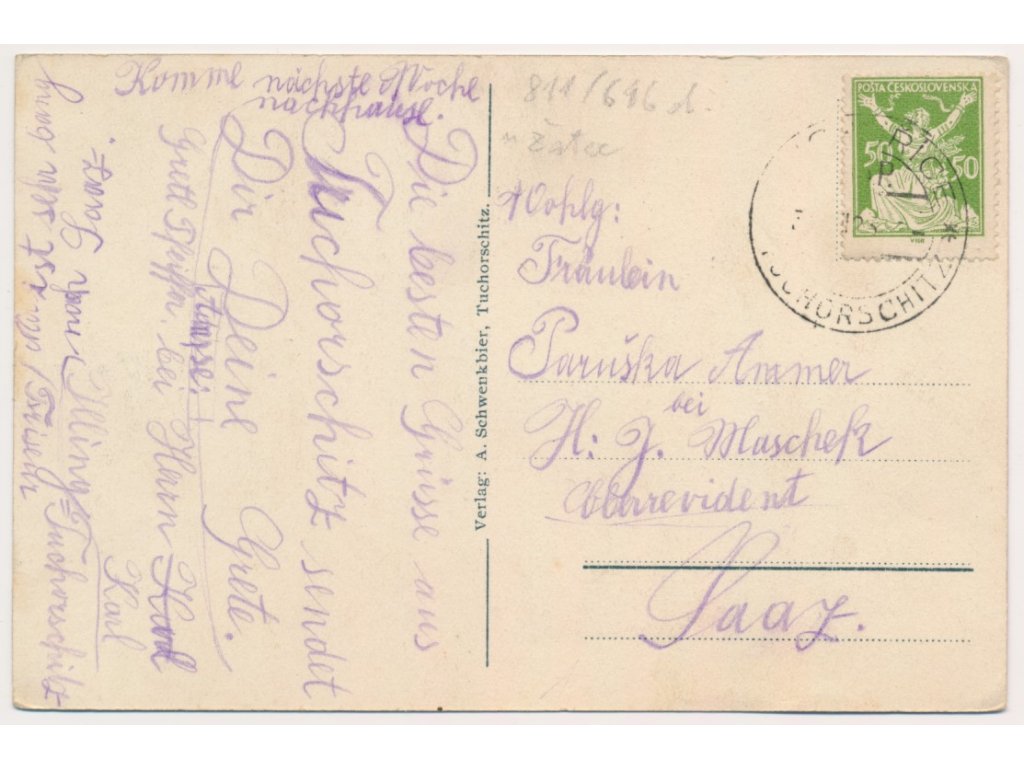 Komme nächste Woche
nachhause.
Die besten Grüsse aus
Tuchorschitz sendet
Dir Deine Grete.
Adresse:
bei Herrn Karl
Karl
Tuchorschitz
Saaz.
Verlag: A. Schwenkbier, Tuchorschitz.
811/696 d.
u Žatce
POSTA ČESKOSLOVENSKA
50 50
TUCHORSCHITZ
Wohlg:
Fräulein
Paruška Ammer
bei
H: J. Maschek
Oberrevident
Saaz.